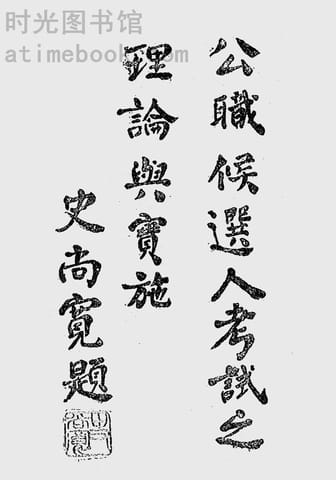 时光图书馆
atimebook.com
公職候選人考試之
理論與實施
史尚寬題